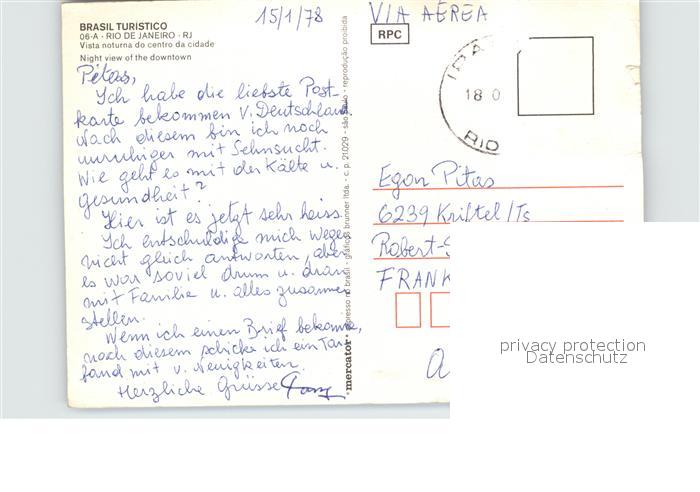 15/1/78
BRASIL TURÍSTICO
06-A - RIO DE JANEIRO - RJ
Vista noturna do centro da cidade
Night view of the downtown
Pitas,
Ich habe die liebste Post-
karte bekommen v. Deutschland.
Nach diesem bin ich noch
unruhiger mit Sehnsucht.
Wie geht es mit der Kälte u.
gesundheit?
Hier ist es jetzt sehr heiss.
Ich entschuldige mich wegen
nicht gleich antworten, aber
es war soviel drum u. dran
mit Familie u. alles zusammen
stellen.
Wenn ich einen Brief bekomme,
nach diesem schicke ich ein
band mit v. Neuigkeiten.
Herzliche Grüsse
mercator - impresso no brasil - gráficos brunner ltda. - c. p. 21029 - são paulo - reprodução proibida
VIA AÉREA
RPC
18 0
RIO
Egon Pitas
6239 Kriftel/Ts
Robert-
FRANK
privacy protection
Datenschutz